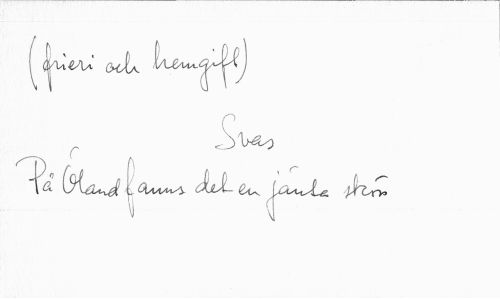 (frieri och hemgift)
Svas
På Öland fanns det en jänta skön